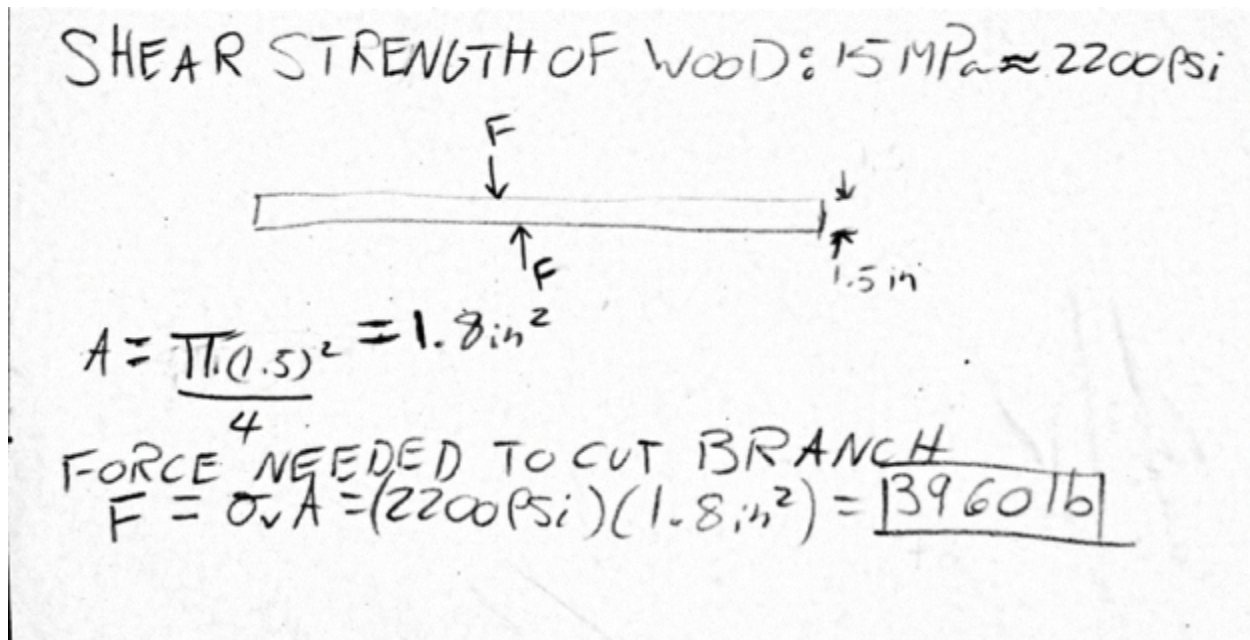 SHEAR STRENGTH OF WOOD: 15 MPa ≈ 2200 psi
F
F
1.5 in
A = π(1.5)² = 1.8 in²
4
FORCE NEEDED TO CUT BRANCH
F = σᵥA = (2200 psi)(1.8 in²) = 3960 lb